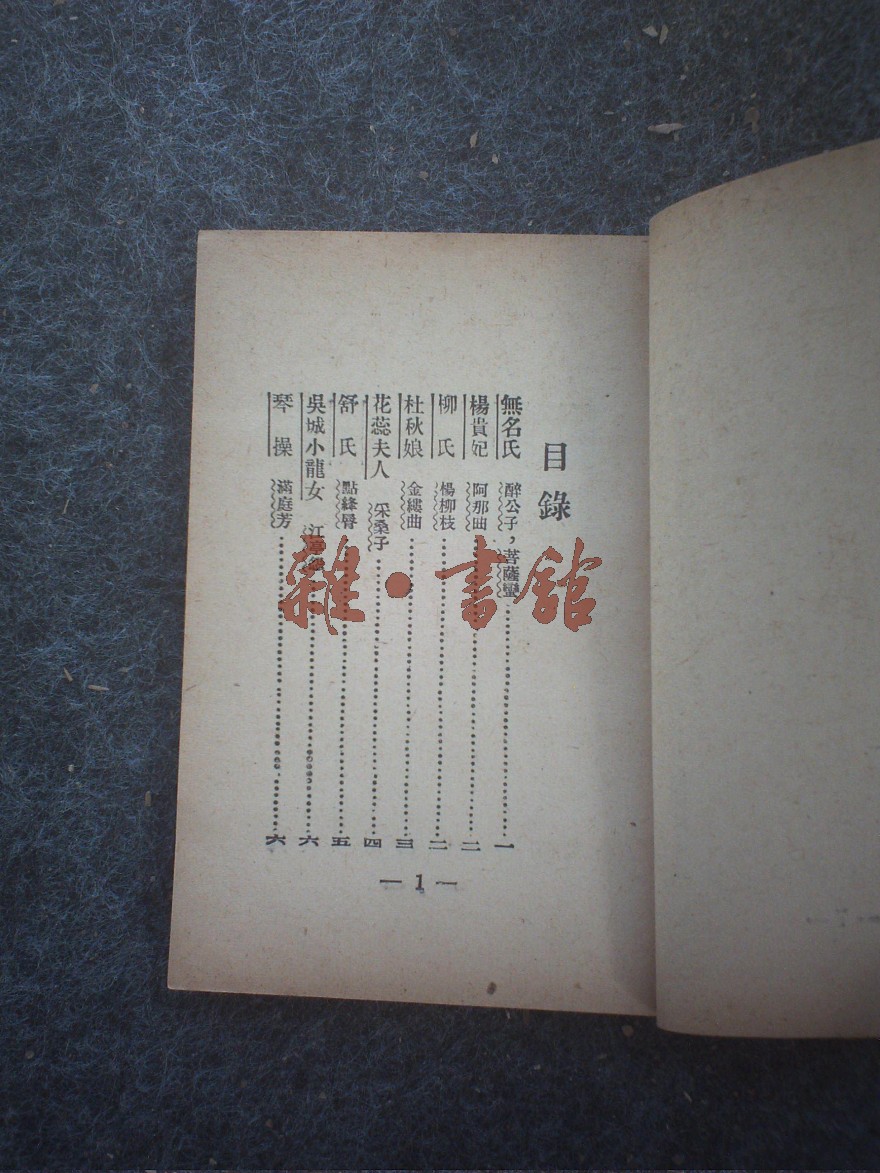 目錄
無名氏 醉公子，菩薩蠻……一
楊貴妃 阿那曲……二
柳氏 楊柳枝……二
杜秋娘 金縷曲……三
花蕊夫人 采桑子……四
舒氏 點絳脣……五
吳城小龍女 江亭怨……六
琴操 滿庭芳……六
— 1 —
雜·書館